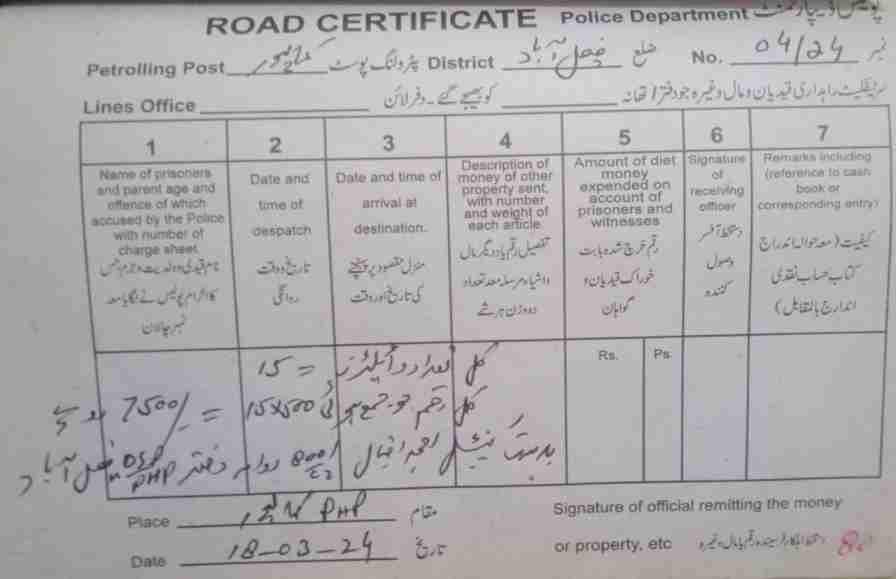 ROAD CERTIFICATE Police Department پولیس ڈیپارٹمنٹ
Petrolling Post پٹرولنگ پوسٹ District فیصل آباد ضلع No. 04/24 نمبر
Lines Office کو بھیجے گئے۔ دفتر لائن سرٹیفکیٹ راہداری قیدیان و مال وغیرہ جو دفتر / تھانہ
1 2 3 4 5 6 7
Name of prisoners and parent age and offence of which accused by the Police with number of charge sheet.
نام قیدی وولدیت وجرم جس کا الزام پولیس نے لگایا معہ نمبر چالان
Date and time of despatch
تاریخ و وقت روانگی
Date and time of arrival at destination.
منزل مقصود پر پہنچنے کی تاریخ اور وقت
Description of money of other property sent, with number and weight of each article.
تفصیل رقم یا دیگر مال واشیاء مرسلہ معہ تعداد و وزن ہر شے
Amount of diet money expended on account of prisoners and witnesses
رقم خرچ شدہ بابت خوراک قیدیان و گواہان
Signature of receiving officer
دستخط آفسر وصول کنندہ
Remarks including (reference to cash book or corresponding entry)
کیفیت (معہ حوالہ اندراج کتاب حساب نقدی اندارج بالمقابل)
Rs. Ps
کل تعداد = 15
کل رقم جو جمع 15x500 = 7500/-
بدست احمد اقبال 800/C2 روانہ دفتر DSP/PHP فیصل آباد
Place PHP مقام
Signature of official remitting the money
Date 18-03-24 تاریخ
or property, etc دستخط اہلکار فرسیندہ رقم یا مال وغیرہ